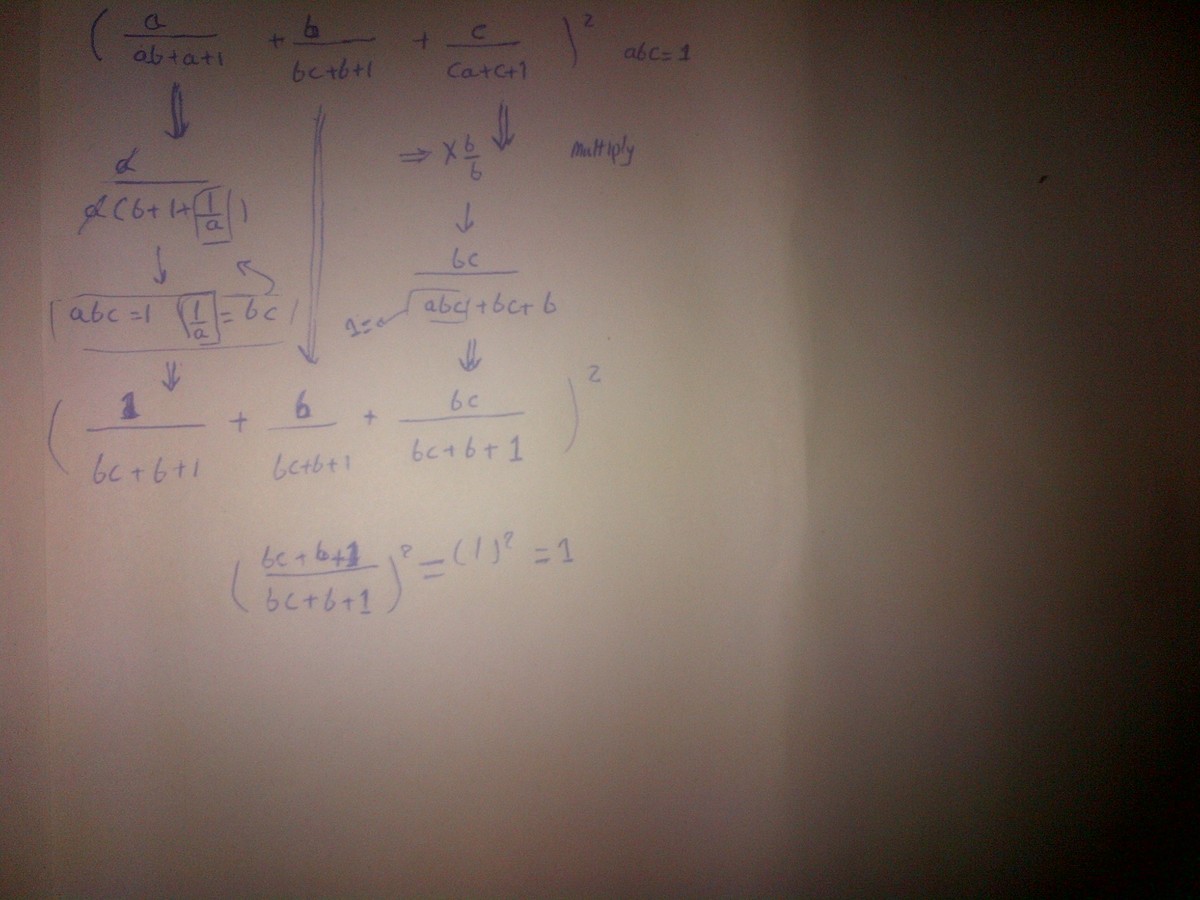 ( a/ab+a+1 + b/bc+b+1 + c/ca+c+1 )² abc=1
⇒ × b/b multiply
a/a(b+1+1/a)
bc/abc+bc+b
abc=1 1/a = bc
1=
( 1/bc+b+1 + b/bc+b+1 + bc/bc+b+1 )²
( bc+b+1/bc+b+1 )² = (1)² = 1